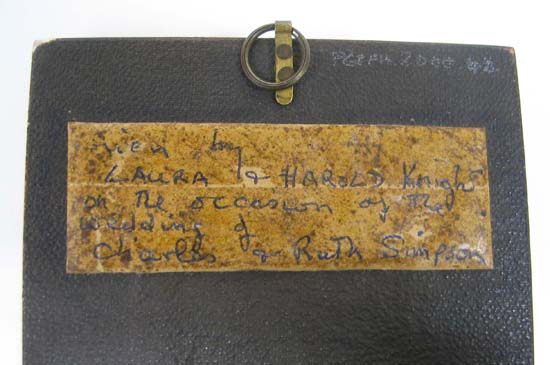 given by
LAURA & HAROLD Knight
on the occasion of the
wedding of
Charles & Ruth Simpson